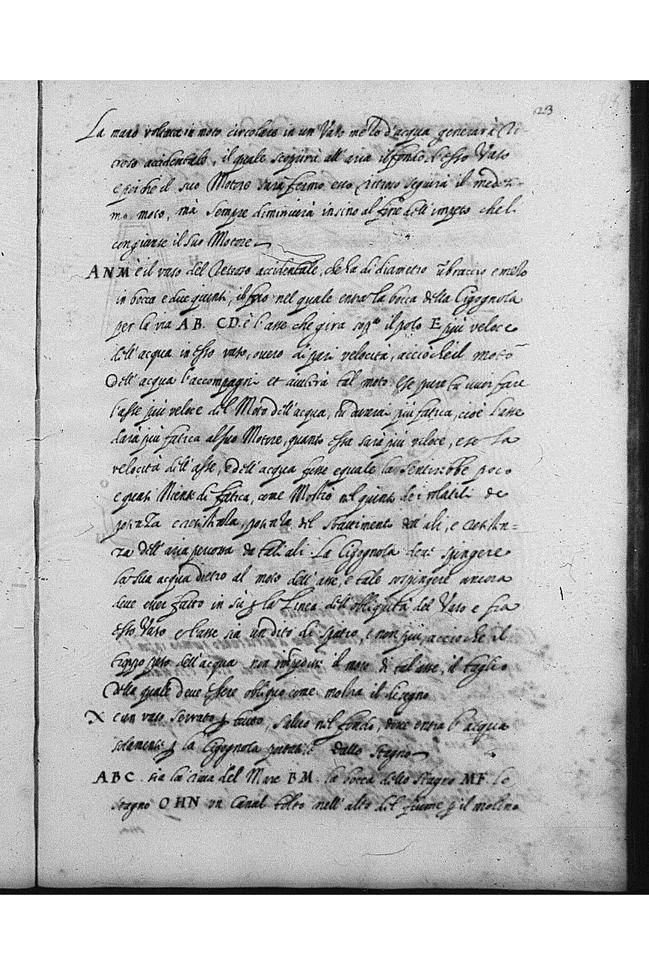 23
La mano voltata in moto circolare in un Vaso mezzo d'acqua generarà Re
troso accidentale, il quale scoprirà all'aria il fondo di esso Vaso
e poiche il suo Motore sarà fermo esso Retroso seguirà il mede
mo moto, mà sempre diminuirà insino al fine dell'impeto chel
congiunse il suo Motore
ANM è il vaso del Retroso accidentale, che ha di diametro un braccio e mezzo
in bocca e due quinti, il foro nel quale entra la bocca della Cigognola
per la via AB. CD. è l'asse che gira sop.ª il polo E più veloce
dell'acqua in esso vaso, overo di pari velocità, acciòche il moto
dell'acqua l'accompagni et aiutarà tal moto e se pure tu vuoi fare
l'asse più veloce del Moto dell'acqua, tu durerai più fatica, cioè l'asse
darà più fatica al suo Motore, quanto esso sarà più veloce, e se la
velocità dell'asse, e dell'acqua fusse eguale la sentirebbe poco
e quasi Niente di fatica, come Mostrò nel quinto dei volatili de
potentia del battimento dell'ali, e
za dell'aria percossa da tali ali. La Cigognola deve spingere
la sua acqua dietro al moto dell'asse, e tale sospingere ancora
deve esser fatto in sù p la Linea dell'obliquità del Vaso e fra
esso Vaso e l'asse sia un dito di spatio, e non più, acciò che il
troppo peso dell'acqua non impedisca il moto di tal asse, il taglio
della quale deve essere obliquo come mostra il disegno
X è un vaso serrato p tutto, salvo nel fondo, dove entra l'acqua
solamente p la Cigognola dallo stagno
ABC. sia la cima del Mare BM. la bocca dello stagno MF. lo
stagno OHN un Canal tolto nell'alto del fiume p il molino